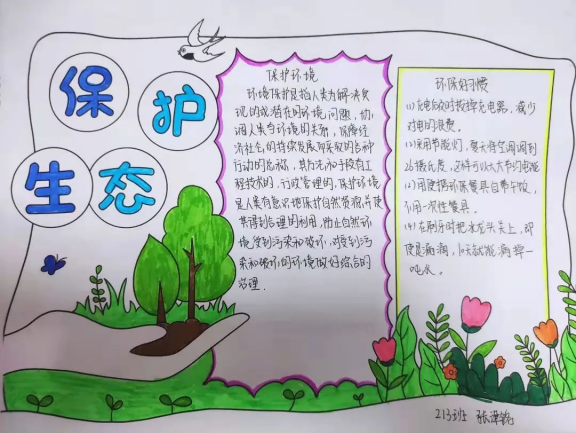 保护
生态
保护环境
环境保护是指人类为解决现
实的或潜在的环境问题，协
调人类与环境的关系，保障经
济社会的持续发展而采取的各种
行动的总称，其方法和手段有工
程技术的，行政管理的，保护环境
是人类有意识地保护自然资源并使
其得到合理的利用，防止自然环
境受到污染和破坏，对受到污
染和破坏的环境做好综合的
治理．
环保好习惯
(1)充电的时拔掉充电器，减少
对电的浪费．
(2)采用节能灯，夏天将空调调到
26摄氏度，这样可以大大节约电能
(3)用便携环保餐具自带午饭，
不用一次性餐具．
(4)在刷牙时把水龙头关上，即
使是滴滴，1天就能滴掉一
吨水．
213班